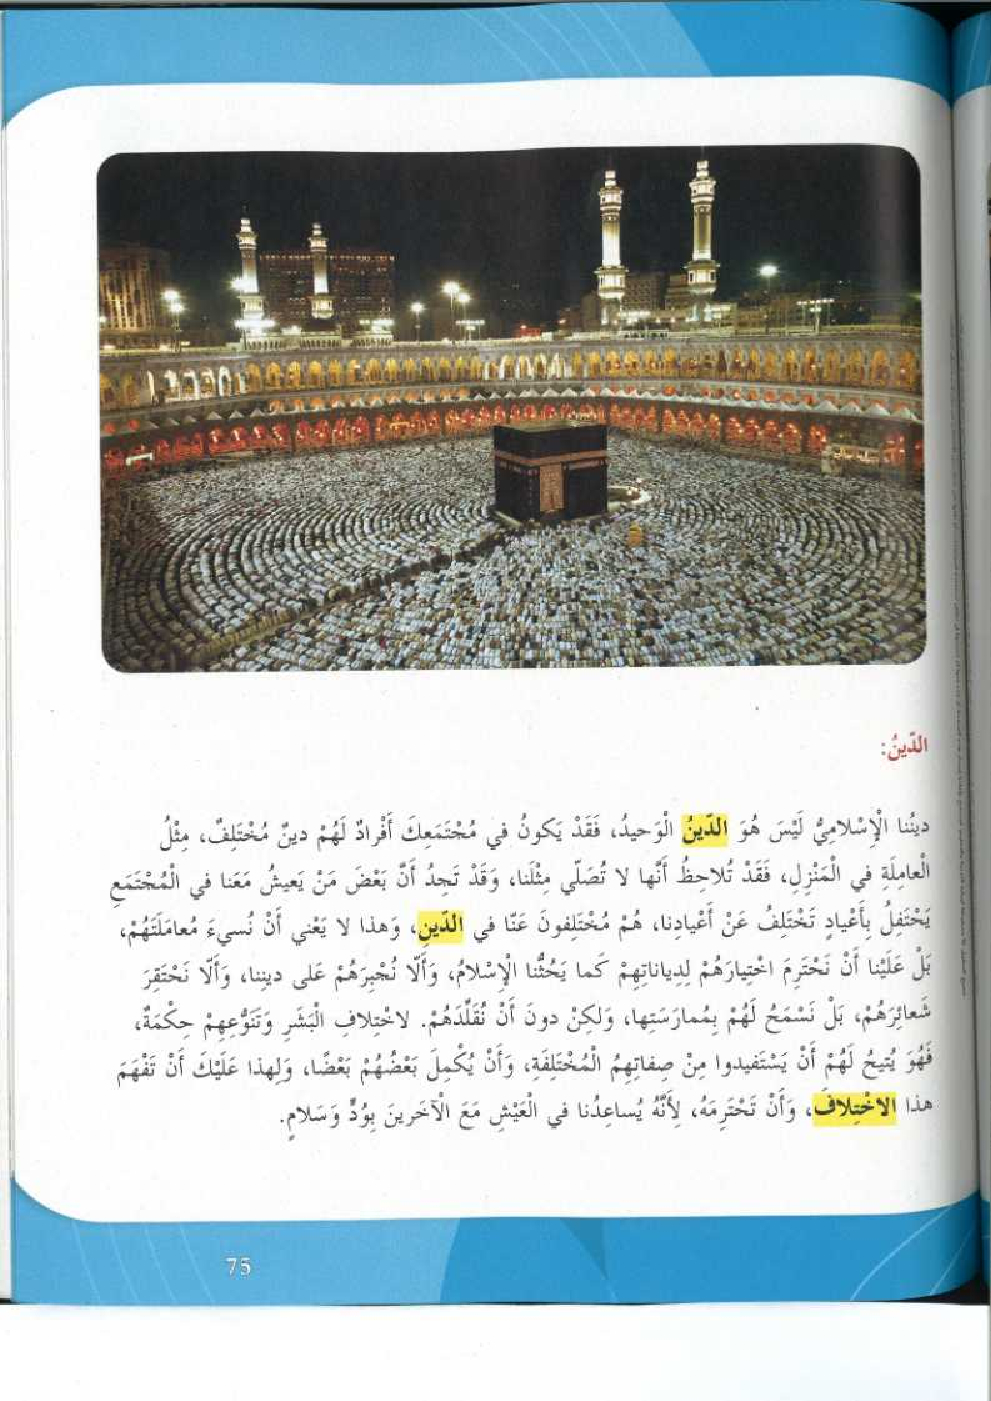 الدّينُ:
دينُنا الْإِسْلامِيُّ لَيْسَ هُوَ الدّينُ الْوَحيدُ، فَقَدْ يَكونُ في مُجْتَمَعِكَ أَفْرادٌ لَهُمْ دينٌ مُخْتَلِفٌ، مِثْلُ
الْعامِلَةِ في الْمَنْزِلِ، فَقَدْ تُلاحِظُ أَنَّها لا تُصَلّي مِثْلَنا، وَقَدْ تَجِدُ أَنَّ بَعْضَ مَنْ يَعيشُ مَعَنا في الْمُجْتَمَعِ
يَحْتَفِلُ بِأَعْيادٍ تَخْتَلِفُ عَنْ أَعْيادِنا، هُمْ مُخْتَلِفونَ عَنّا في الدّينِ، وَهذا لا يَعْني أَنْ نُسيءَ مُعامَلَتَهُمْ،
بَلْ عَلَيْنا أَنْ نَحْتَرِمَ اخْتِيارَهُمْ لِدِياناتِهِمْ كَما يَحُثُّنا الْإِسْلامُ، وَأَلّا نُجْبِرَهُمْ عَلى دينِنا، وَأَلّا نَحْتَقِرَ
شَعائِرَهُمْ، بَلْ نَسْمَحُ لَهُمْ بِمُمارَسَتِها، وَلكِنْ دونَ أَنْ نُقَلِّدَهُمْ. لاخْتِلافِ الْبَشَرِ وَتَنَوُّعِهِمْ حِكْمَةٌ،
فَهُوَ يُتيحُ لَهُمْ أَنْ يَسْتَفيدوا مِنْ صِفاتِهِمُ الْمُخْتَلِفَةِ، وَأَنْ يُكْمِلَ بَعْضُهُمْ بَعْضًا، وَلِهذا عَلَيْكَ أَنْ تَفْهَمَ
هذا الاخْتِلافَ، وَأَنْ تَحْتَرِمَهُ، لِأَنَّهُ يُساعِدُنا في الْعَيْشِ مَعَ الْآخَرينَ بِوُدٍّ وَسَلامٍ.
75